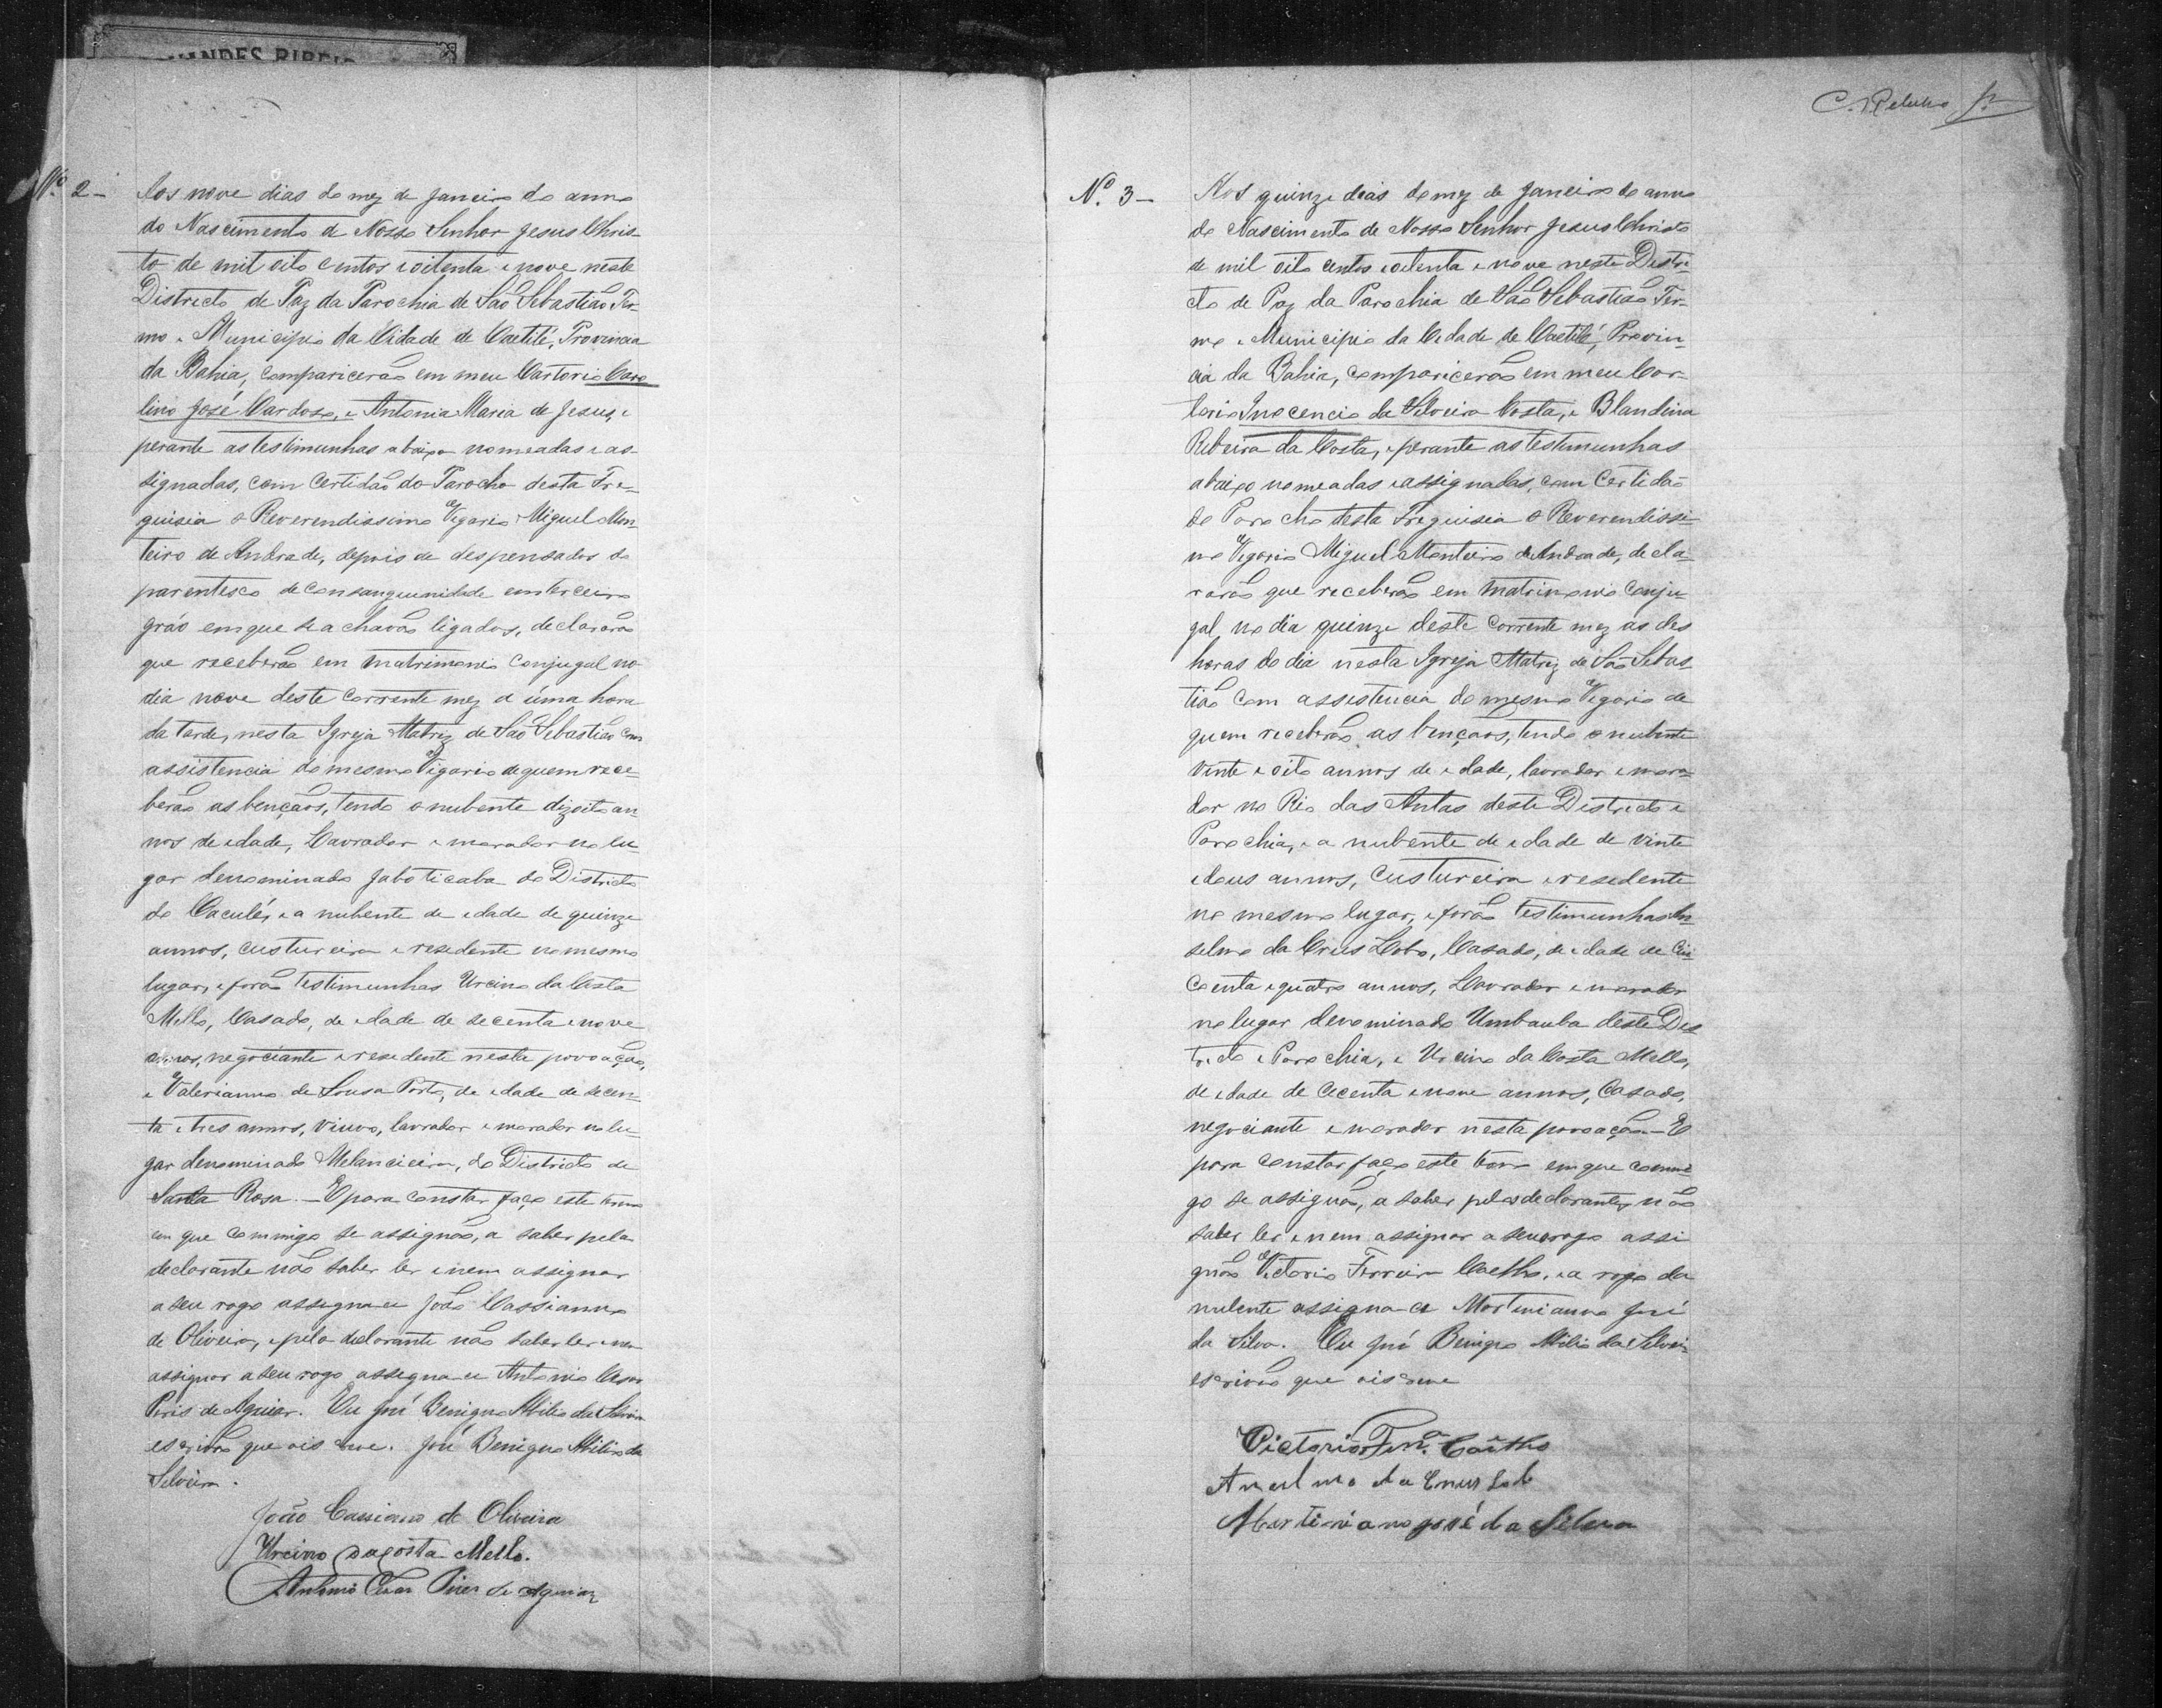 Nº 2 –
Aos nove dias do mez de Janeiro do anno
do Nascimento de Nosso Senhor Jesus Chris-
to de mil oito centos e oitenta e nove neste
Districto de Paz da Parochia de São Sebastião Ter-
mo e Municipio da Cidade de Caetité, Provincia
da Bahia, comparicerão em meu Cartorio Caro
lino José Cardoso, e Antonia Maria de Jesus, e
perante as testimunhas abaixo nomeadas e as-
signadas, com Certidão do Parocho desta Fre-
guisia o Reverendissimo Vigario Miguel Mon-
teiro de Andrade, depois de despensados do
parentesco de Consanguinidade em terceiro
gráo em que se achavão ligados, declararão
que receberão em matrimonio Conjugal no
dia nove deste Corrente mez a úma hora
da tarde, nesta Igreja Matriz de São Sebastião com
assistencia do mesmo Vigario de quem rece-
berão as bençãos, tendo o nubente dizoito an-
nos de idade, Lavrador e morador no lu-
gar denominado Jaboticaba do Districto
do Caculé, e a nubente de idade de quinze
annos, custureira e residente no mesmo
lugar, e forão testimunhas Urcino da Costa
Mello, Casado, de idade de secenta e nove
annos, negociante e residente nesta povoação,
e Valerianno de Sousa Porto, de idade de secen-
ta e tres annos, viuvo, lavrador e morador no lu-
gar denominado Melancieira, do Districto de
Santa Rosa. – E para constar faço este termo
em que commigo se assignão, a saber pela
declarante não saber ler e nem assignar
a seu rogo assigna-se João Cassianno
de Oliveira, e pelo declarante não saber ler e nem
assignar a seu rogo assigna-se Antonio Cesar
Piris de Aguiar. Eu José Benigno Abilio da Silveira
escrivão que o iscrevi. José Benigno Abilio da
Silveira.
João Cassiano de Oliveira
Urcino da Costa Mello.
Antonio Cesar Pires de Aguiar
Nº 3 –
Aos quinze dias do mez de Janeiro do anno
do Nascimento de Nosso Senhor Jesus Christo
de mil oito centos e oitenta e nove neste Distri-
cto de Paz da Parochia de São Sebastião Ter-
mo e Municipio da Cidade de Caetité, Provin-
cia da Bahia, comparicerão em meu Car-
torio Inocencio da Silveira Costa, e Blandina
Ribeira da Costa, e perante as testimunhas
abaixo nomeadas e assignadas, com Certidão
do Parocho desta Freguisia o Reverendissi-
mo Vigario Miguel Monteiro de Andrade, decla-
rarão que receberão em matrimonio Conju-
gal no dia quinze deste Corrente mez as des
horas do dia nesta Igreja Matriz de São Sebas-
tião com assistencia do mesmo Vigario de
quem receberão as bençãos, tendo o nubente
vinte e oito annos de idade, lavrador e mora-
dor no Rio das Antas deste Districto e
Parochia, e a nubente de idade de vinte
e dous annos, Custureira e residente
no mesmo lugar, e forão testimunhas An-
selmo da Crus Lobo, Casado, de idade de Cin-
coenta e quatro annos, Lavrador e morador
no lugar denominado Umbauba deste Dis
tricto e Parochia, e Urcino da Costa Mello,
de idade de Cecenta e nove annos, Casado,
negociante e morador nesta povoação. – E
para constar faço este termo em que commi-
go se assignão, a saber pelos declarantes não
saber ler e nem assignar a seu rogo assi
gnão Victorio Ferreira Coelho, e a rogo da
nubente assigna-se Martinianno José
da Silva. Eu José Benigno Abilio da Silveira
escrivão que o iscrevi
Victorio Ferra. Coêlho
Anselmo da Crus Lobo
Martiniano José da Silva